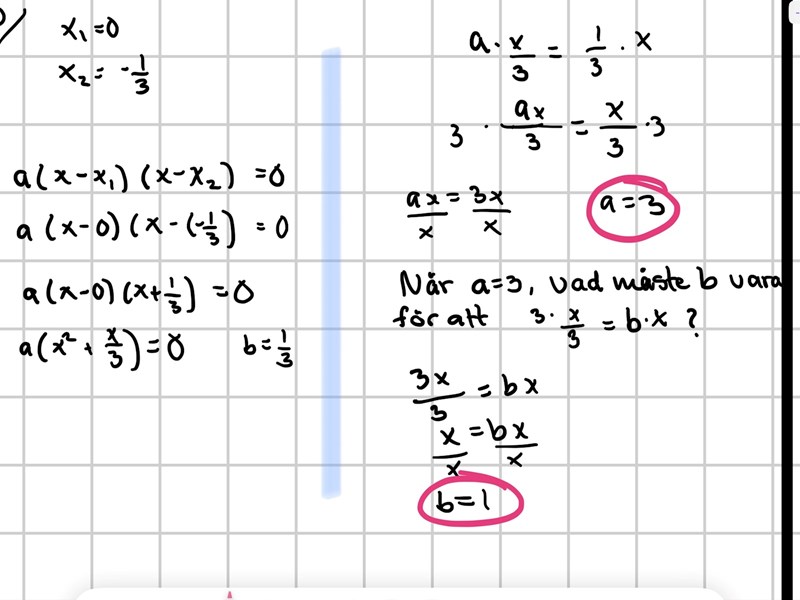 x₁=0
x₂= -1/3
a(x-x₁)(x-x₂) =0
a(x-0)(x-(-1/3) =0
a(x-0)(x+1/3)=0
a(x²+x/3)=0 b=1/3
a·x/3=1/3·x
3·ax/3=x/3·3
ax/x=3x/x a=3
När a=3, vad måste b vara
för att 3·x/3=b·x?
3x/3=bx
x/x=bx/x
b=1